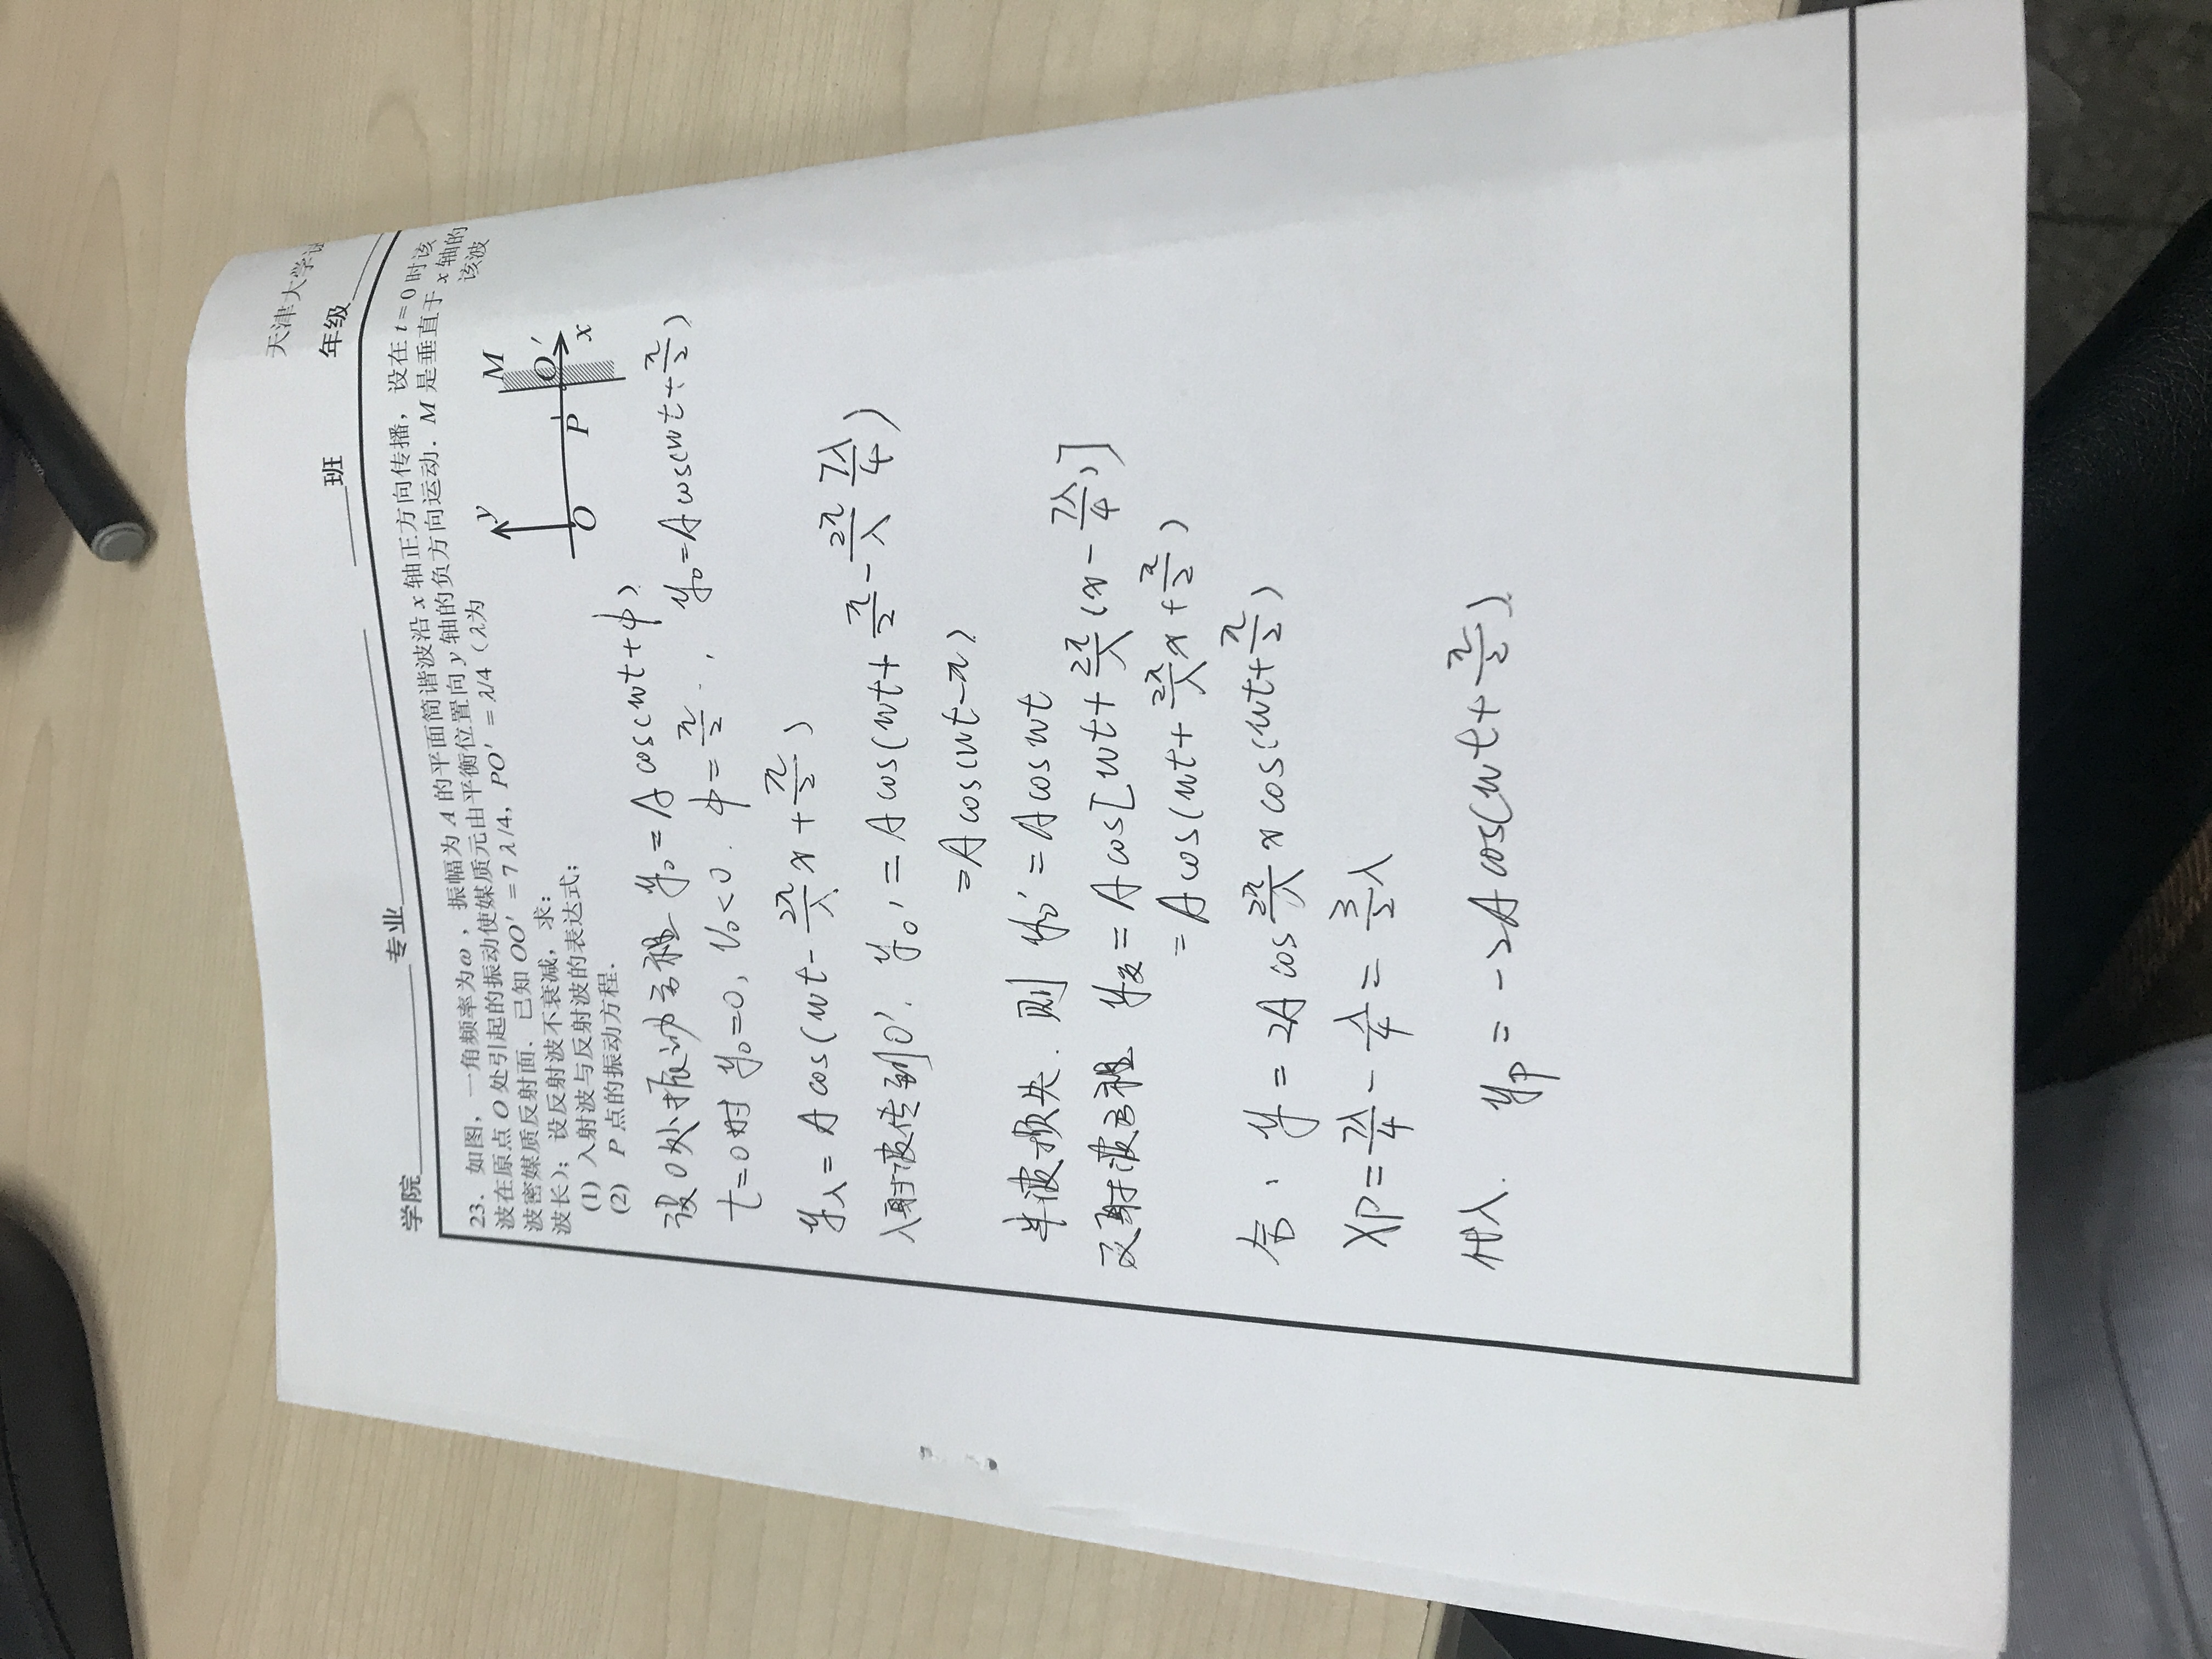 天津大学试
学院 专业 班 年级
23．如图，一角频率为ω，振幅为 A 的平面简谐波沿 x 轴正方向传播，设在 t = 0 时该
波在原点 O 处引起的振动使媒质元由平衡位置向 y 轴的负方向运动．M 是垂直于 x 轴的
波密媒质反射面．已知 OO′ = 7 λ/4，PO′ = λ/4（λ为该波
波长）；设反射波不衰减，求：
(1) 入射波与反射波的表达式；
(2) P 点的振动方程．
y
M
O P O′ x
设O处振动方程 y₀ = A cos(ωt + φ)
t=0时 y₀=0, v₀<0. φ = π/2, y₀ = A cos(ωt + π/2)
y入 = A cos(ωt - 2π/λ x + π/2)
入射波传到O′. y₀′ = A cos(ωt + π/2 - 2π/λ 7λ/4)
= A cos(ωt - π)
半波损失. 则 y₀′ = A cos ωt
反射波方程 y反 = A cos[ωt + 2π/λ (x - 7λ/4)]
= A cos(ωt + 2π/λ x + π/2)
合: y = 2A cos 2π/λ x cos(ωt + π/2)
xP = 7λ/4 - λ/4 = 3/2 λ
代入. yP = -2A cos(ωt + π/2)